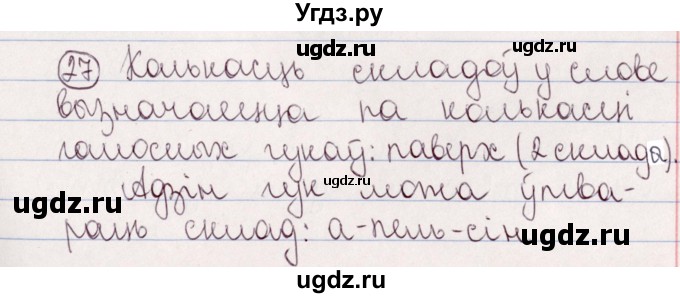 Угдз.ру
ugdz.ru
ugdz.ru
27 Колькасць складоў у слове
ugdz.ru
вызначаецца па колькасці
галосных гукаў: паверх (2 склада).
ugdz.ru
ugdz.ru
Адзін гук можа ўтва-
ugdz.ru
раць склад: а-пель-сін
ugdz.ru
ugdz.ru